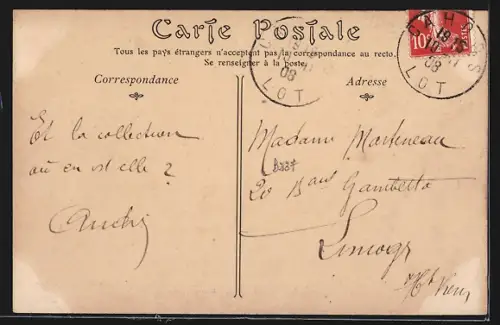 Carte Postale
Tous les pays étrangers n'acceptent pas la correspondance au recto.
Se renseigner à la poste.
Correspondance
Adresse
Et la collection
où en est elle ?
Madame Martineau
20 Bard Gambetta
Limoges
Hte Vienne
CAHORS
08
LOT
LOT
10c